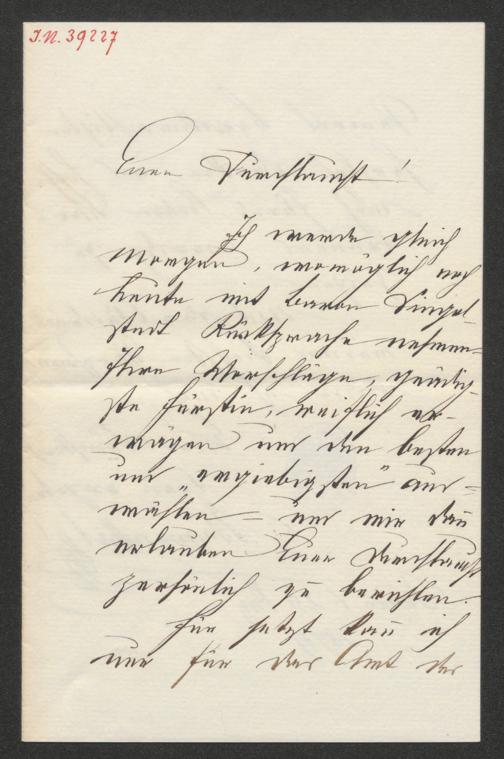 I.N. 39227
Euer Durchlaucht!
Ich werde gleich
morgen, womöglich noch
heute mit Baron Dingel-
stedt Rücksprache nehmen –
Ihre Vorschläge, gnädig-
ste Fürstin, reiflich er-
wägen und den besten
und „ergiebigsten" aus-
wählen – und mir dann
erlauben Euer Durchlaucht
persönlich zu berichten.
Für jetzt kann ich
nur für das Amt der